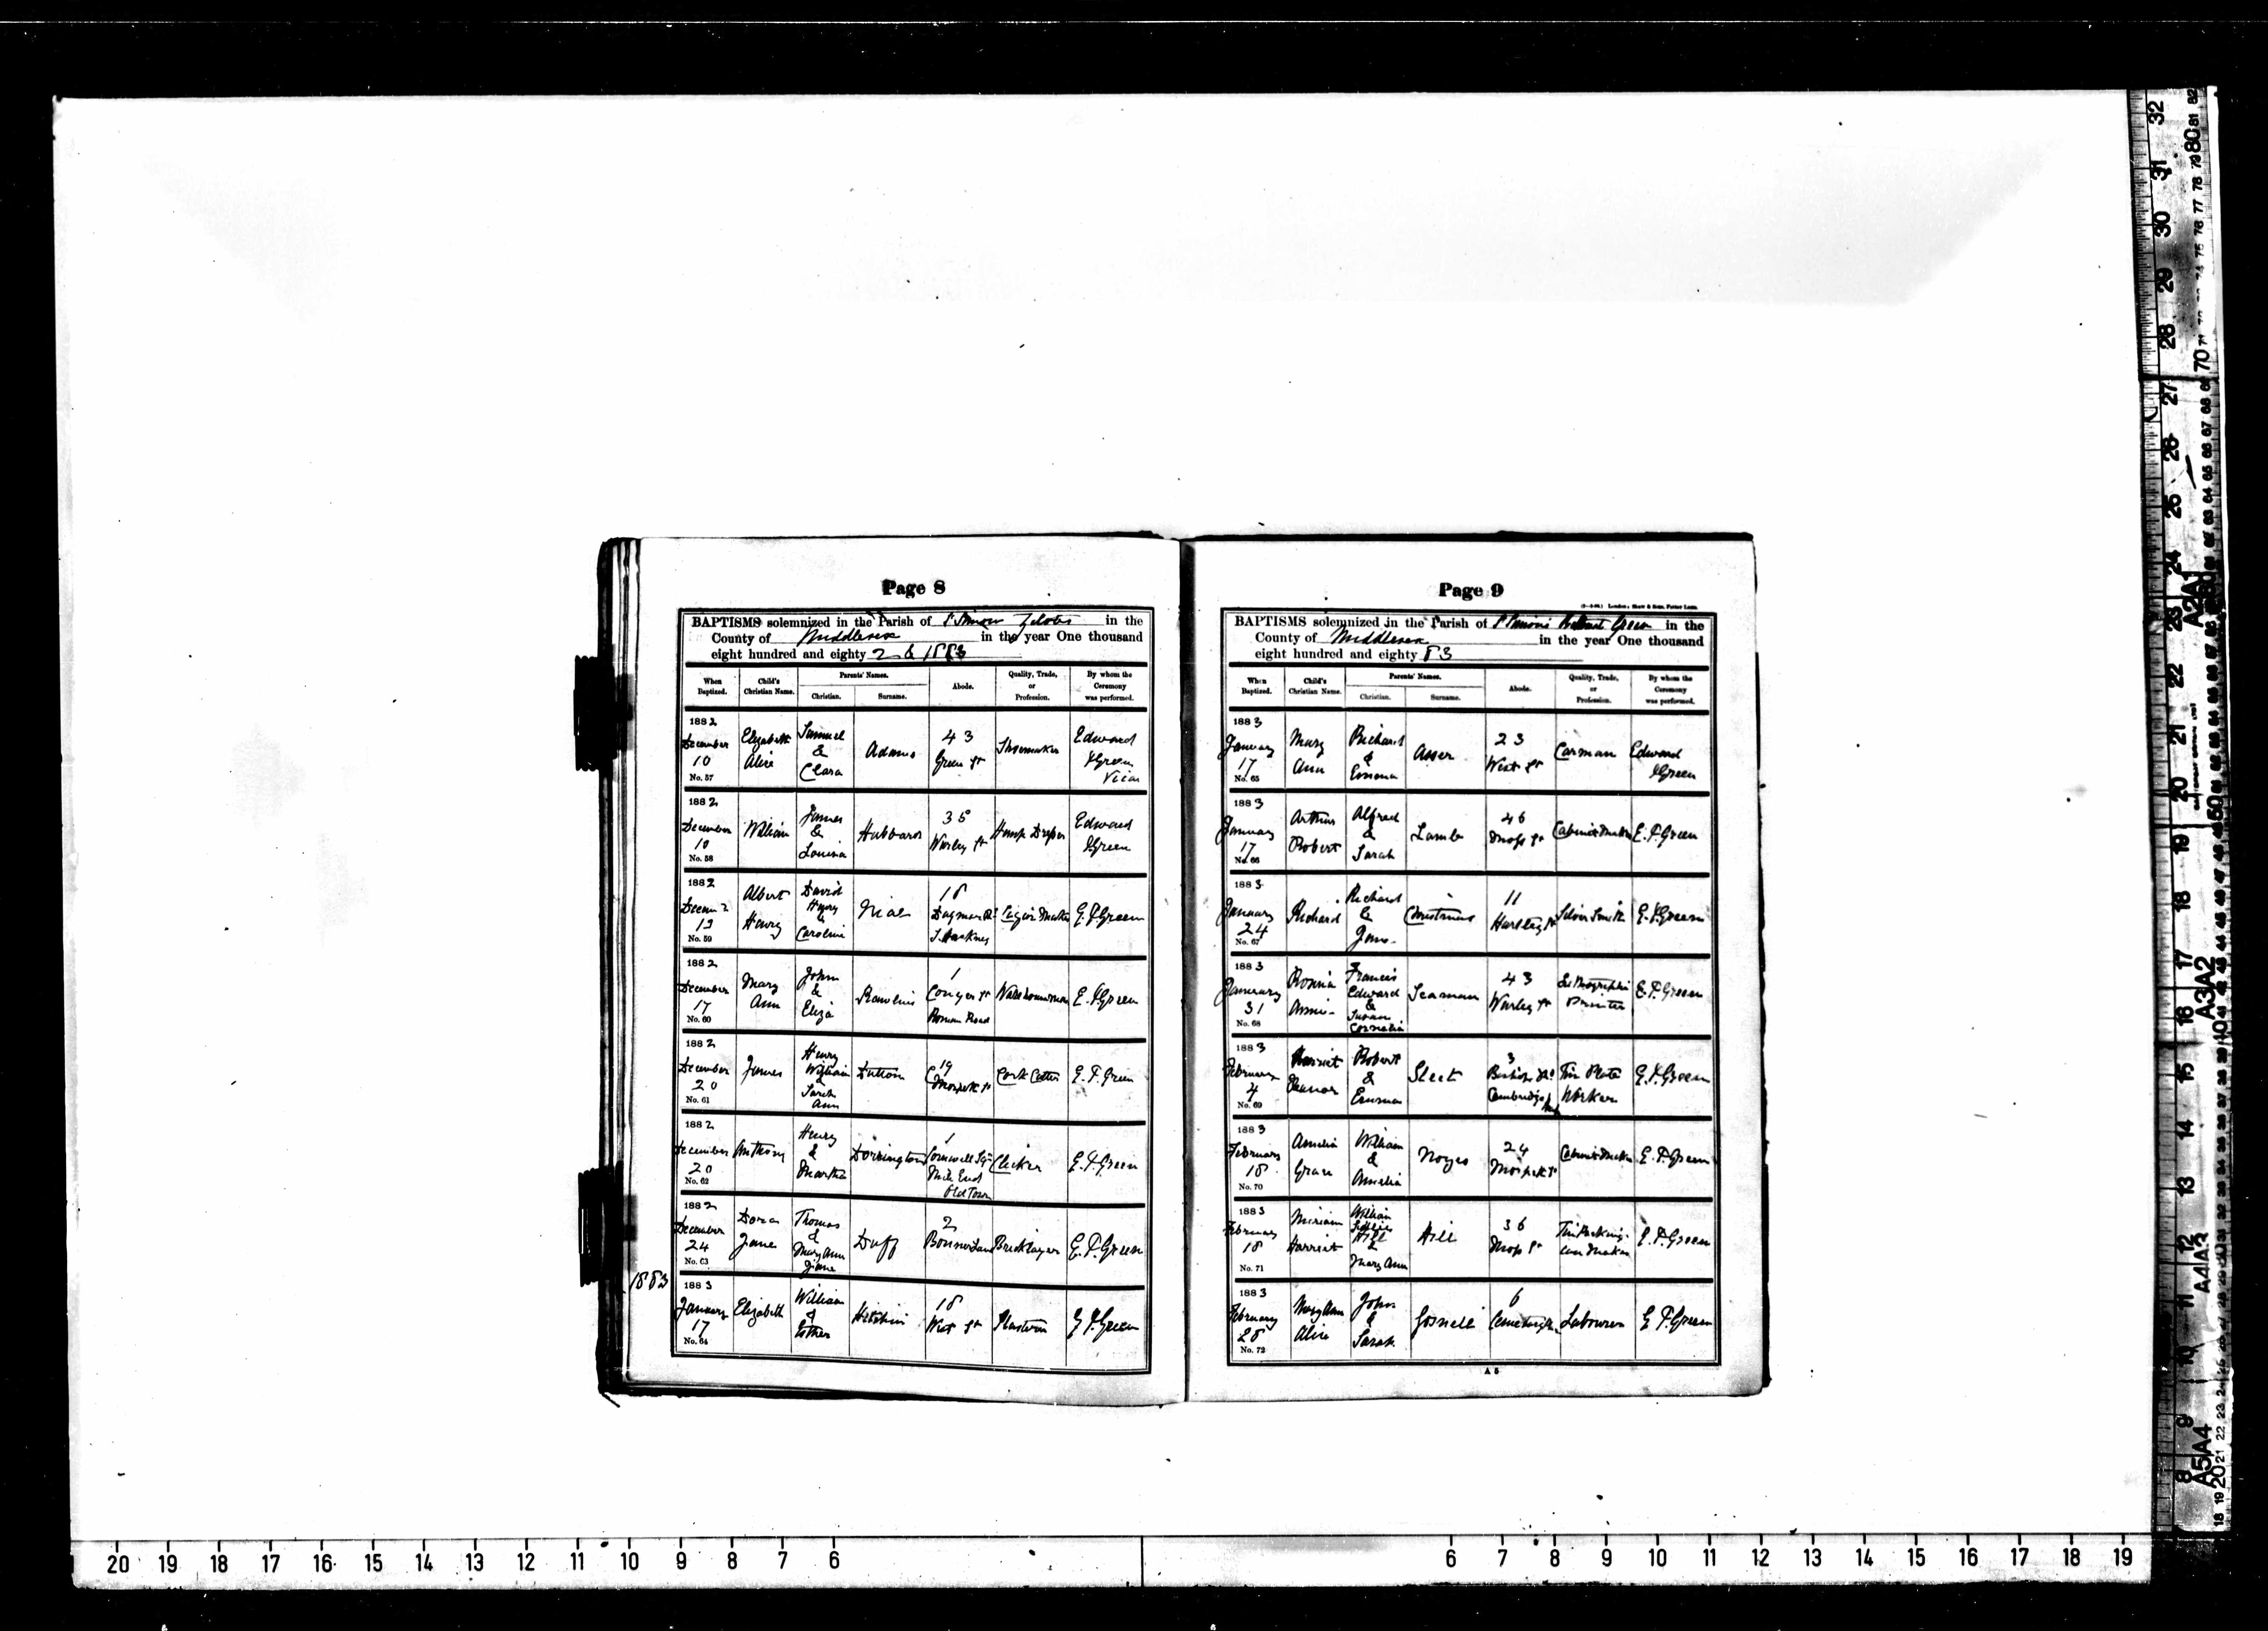 Page 8
BAPTISMS solemnized in the Parish of St Simon Zelotes in the
County of Middlesex in the year One thousand
eight hundred and eighty 2 & 1883
When Baptized. Child's Christian Name. Parents' Names. Christian. Surname. Abode. Quality, Trade, or Profession. By whom the Ceremony was performed.
1882 December 10 No. 57 Elizabeth Alice Samuel & Clara Adams 43 Green St Shoemaker Edward P Green Vicar
1882 December 10 No. 58 William James & Louisa Hubbard 35 Warley St Edward P Green
1882 13 No. 59 Albert Henry David Henry & Caroline 18 Dagmar Rd S. Hackney E. P. Green
1882 December 17 No. 60 Mary Ann John & Eliza Rawlins 1 Conyer St Roman Road Warehouseman E. P. Green
1882 December 20 No. 61 James Henry William & Sarah Ann Dutton 19 Morpeth St Cork Cutter E. P. Green
1882 December 20 No. 62 Anthony Henry & Martha Dorrington 1 Cornwell Sq Mile End Old Town Clicker E. P. Green
1882 December 24 No. 63 Dora Jane Thomas & Mary Ann Jane Duff 2 Bonner Lane Bricklayer E. P. Green
1883
1883 January 17 No. 64 Elizabeth William & Esther 18 West St E P. Green
Page 9
BAPTISMS solemnized in the Parish of St Simons Bethnal Green in the
County of Middlesex in the year One thousand
eight hundred and eighty 83
When Baptized. Child's Christian Name. Parents' Names. Christian. Surname. Abode. Quality, Trade, or Profession. By whom the Ceremony was performed.
1883 January 17 No. 65 Mary Ann Richard & Emma Asser 23 West St Carman Edward P Green
1883 January 17 No. 66 Arthur Robert Alfred & Sarah Lamb 46 Cabinet Maker E. P. Green
1883 January 24 No. 67 Richard Richard & Jane Christmas 11 Hartley St Silver Smith E. P. Green
1883 January 31 No. 68 Rosina Annie Francis Edward & Susan Cornelia Seaman 43 Warley St Lithographic Printer E. P. Green
1883 February 4 No. 69 Harriet Eleanor Robert & Emma Sleet 3 Bishop Rd Cambridge Tin Plate Worker E. P. Green
1883 February 18 No. 70 Amelia Grace William & Amelia Noyes 24 Morpeth St Cabinet Maker E. P. Green
1883 February 18 No. 71 Miriam Harriet William Hill & Mary Ann Hill 36 E. P. Green
1883 February 28 No. 72 Mary Ann Alice John & Sarah Gosnell 6 Labourer E P. Green
A 5